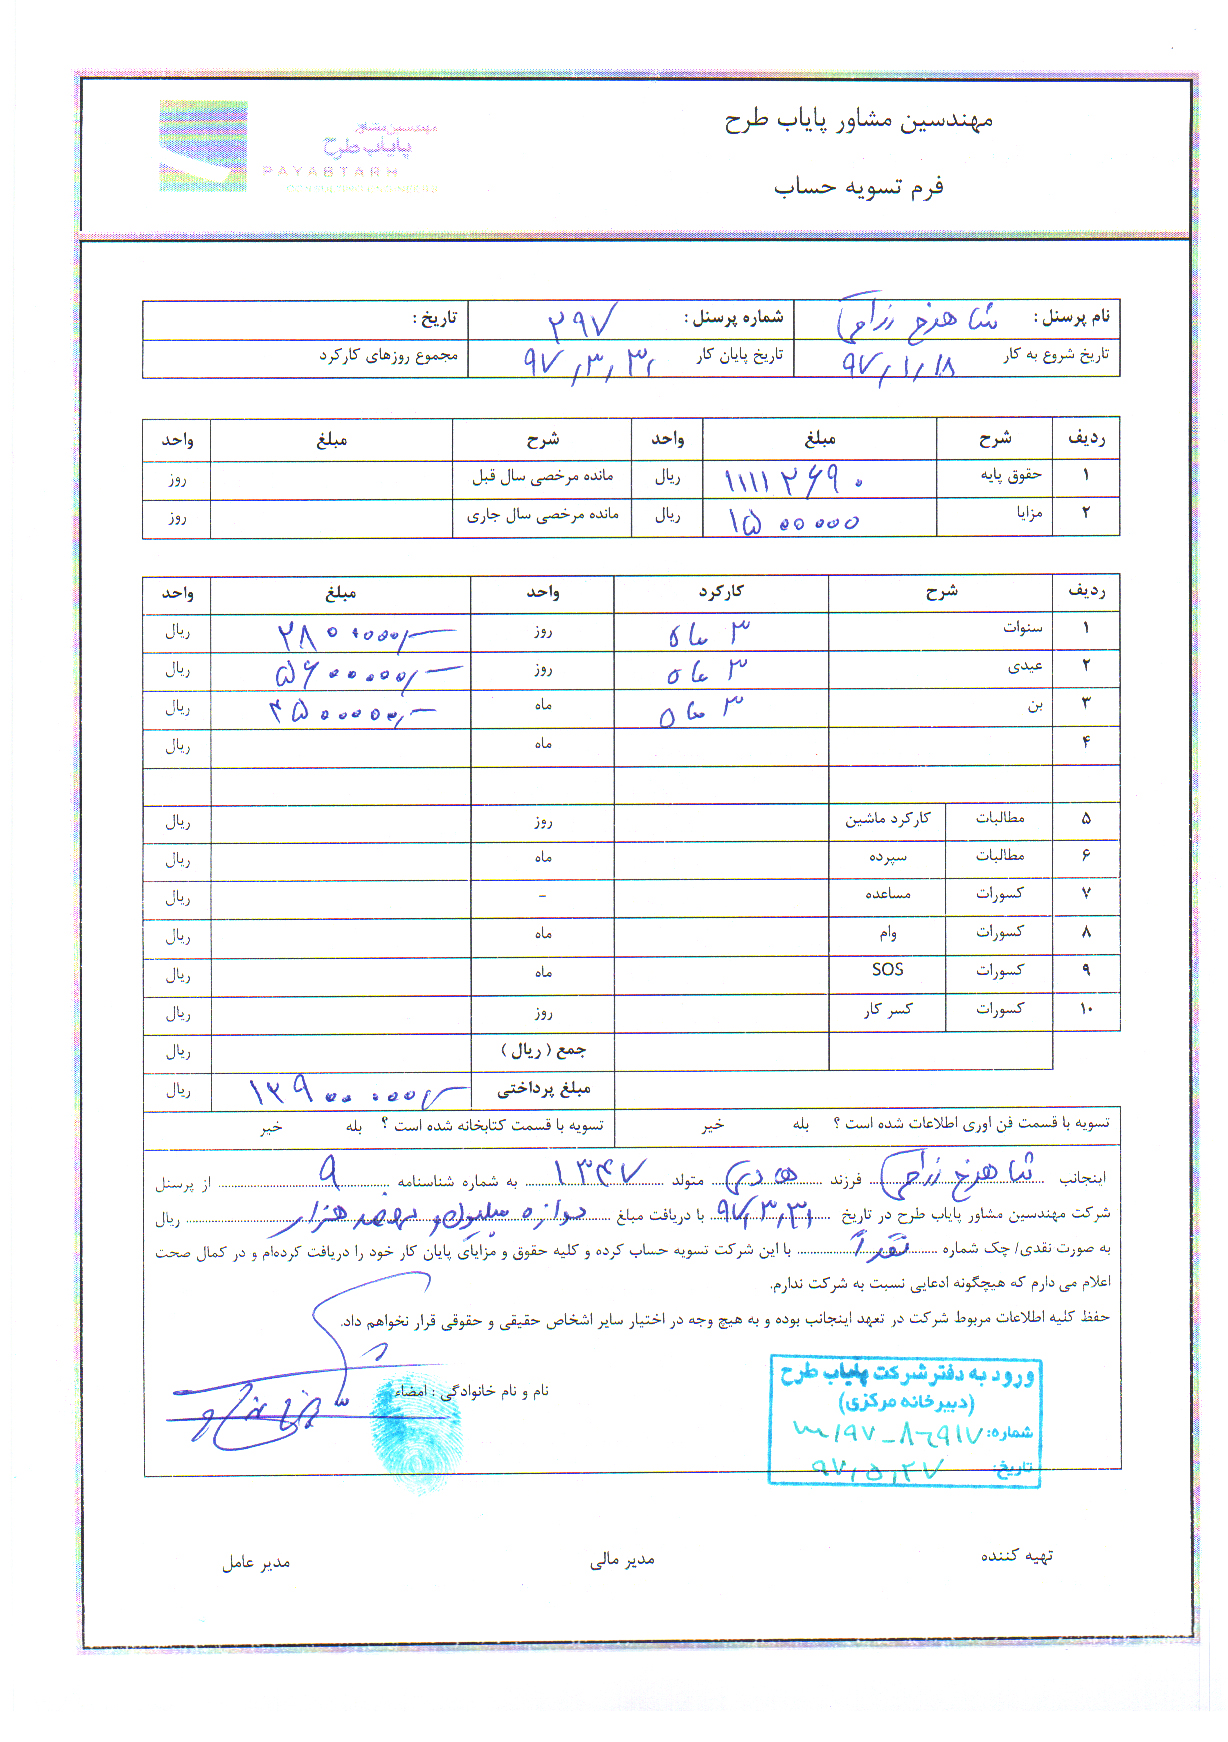 مهندسین مشاور پایاب طرح
فرم تسویه حساب
مهندسین مشاور
پایاب طرح
PAYABTARH
CONSULTING ENGINEERS
نام پرسنل : شاهرخ شماره پرسنل : ۲۹۷ تاریخ :
تاریخ شروع به کار ۹۷/۱/۱۸ تاریخ پایان کار ۹۷/۳/۳۱ مجموع روزهای کارکرد
ردیف شرح مبلغ واحد شرح مبلغ واحد
۱ حقوق پایه ۱۱۱۱۲۶۹۰ ریال مانده مرخصی سال قبل روز
۲ مزایا ۱۵۰۰۰۰۰ ریال مانده مرخصی سال جاری روز
ردیف شرح کارکرد واحد مبلغ واحد
۱ سنوات ۳ ماه روز ۲۸۰۰۰۰۰/- ریال
۲ عیدی ۳ ماه روز ۵۶۰۰۰۰۰/- ریال
۳ بن ۳ ماه ماه ۴۵۰۰۰۰۰/- ریال
۴ ماه ریال
۵ مطالبات کارکرد ماشین روز ریال
۶ مطالبات سپرده ماه ریال
۷ کسورات مساعده - ریال
۸ کسورات وام ماه ریال
۹ کسورات SOS ماه ریال
۱۰ کسورات کسر کار روز ریال
جمع ( ریال ) ریال
مبلغ پرداختی ۱۲۹۰۰۰۰۰/- ریال
تسویه با قسمت فن اوری اطلاعات شده است ؟ بله خیر تسویه با قسمت کتابخانه شده است ؟ بله خیر
اینجانب شاهرخ فرزند متولد ۱۳۴۷ به شماره شناسنامه ۹ از پرسنل
شرکت مهندسین مشاور پایاب طرح در تاریخ ۹۷/۳/۳۱ با دریافت مبلغ دوازده میلیون و نهصد هزار ریال
به صورت نقدی/ چک شماره نقداً با این شرکت تسویه حساب کرده و کلیه حقوق و مزایای پایان کار خود را دریافت کرده‌ام و در کمال صحت
اعلام می دارم که هیچگونه ادعایی نسبت به شرکت ندارم.
حفظ کلیه اطلاعات مربوط شرکت در تعهد اینجانب بوده و به هیچ وجه در اختیار سایر اشخاص حقیقی و حقوقی قرار نخواهم داد.
نام و نام خانوادگی : امضاء
ورود به دفتر شرکت پایاب طرح
(دبیرخانه مرکزی)
شماره:
تاریخ: ۹۷/۵/۲۷
تهیه کننده مدیر مالی مدیر عامل